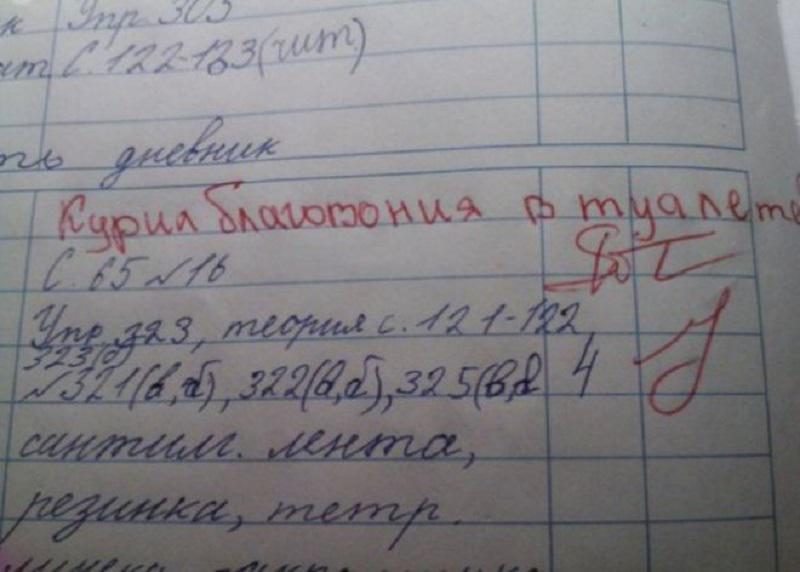 к Упр 303
ит С. 122-123 (чит.)
ть дневник
Курил благовония в туалете
С. 65 №16
Упр. 323, теория с. 121-122
323(б)
№321(в,б), 322(в,б), 325(в, 4
сантим. лента,
резинка, тетр.